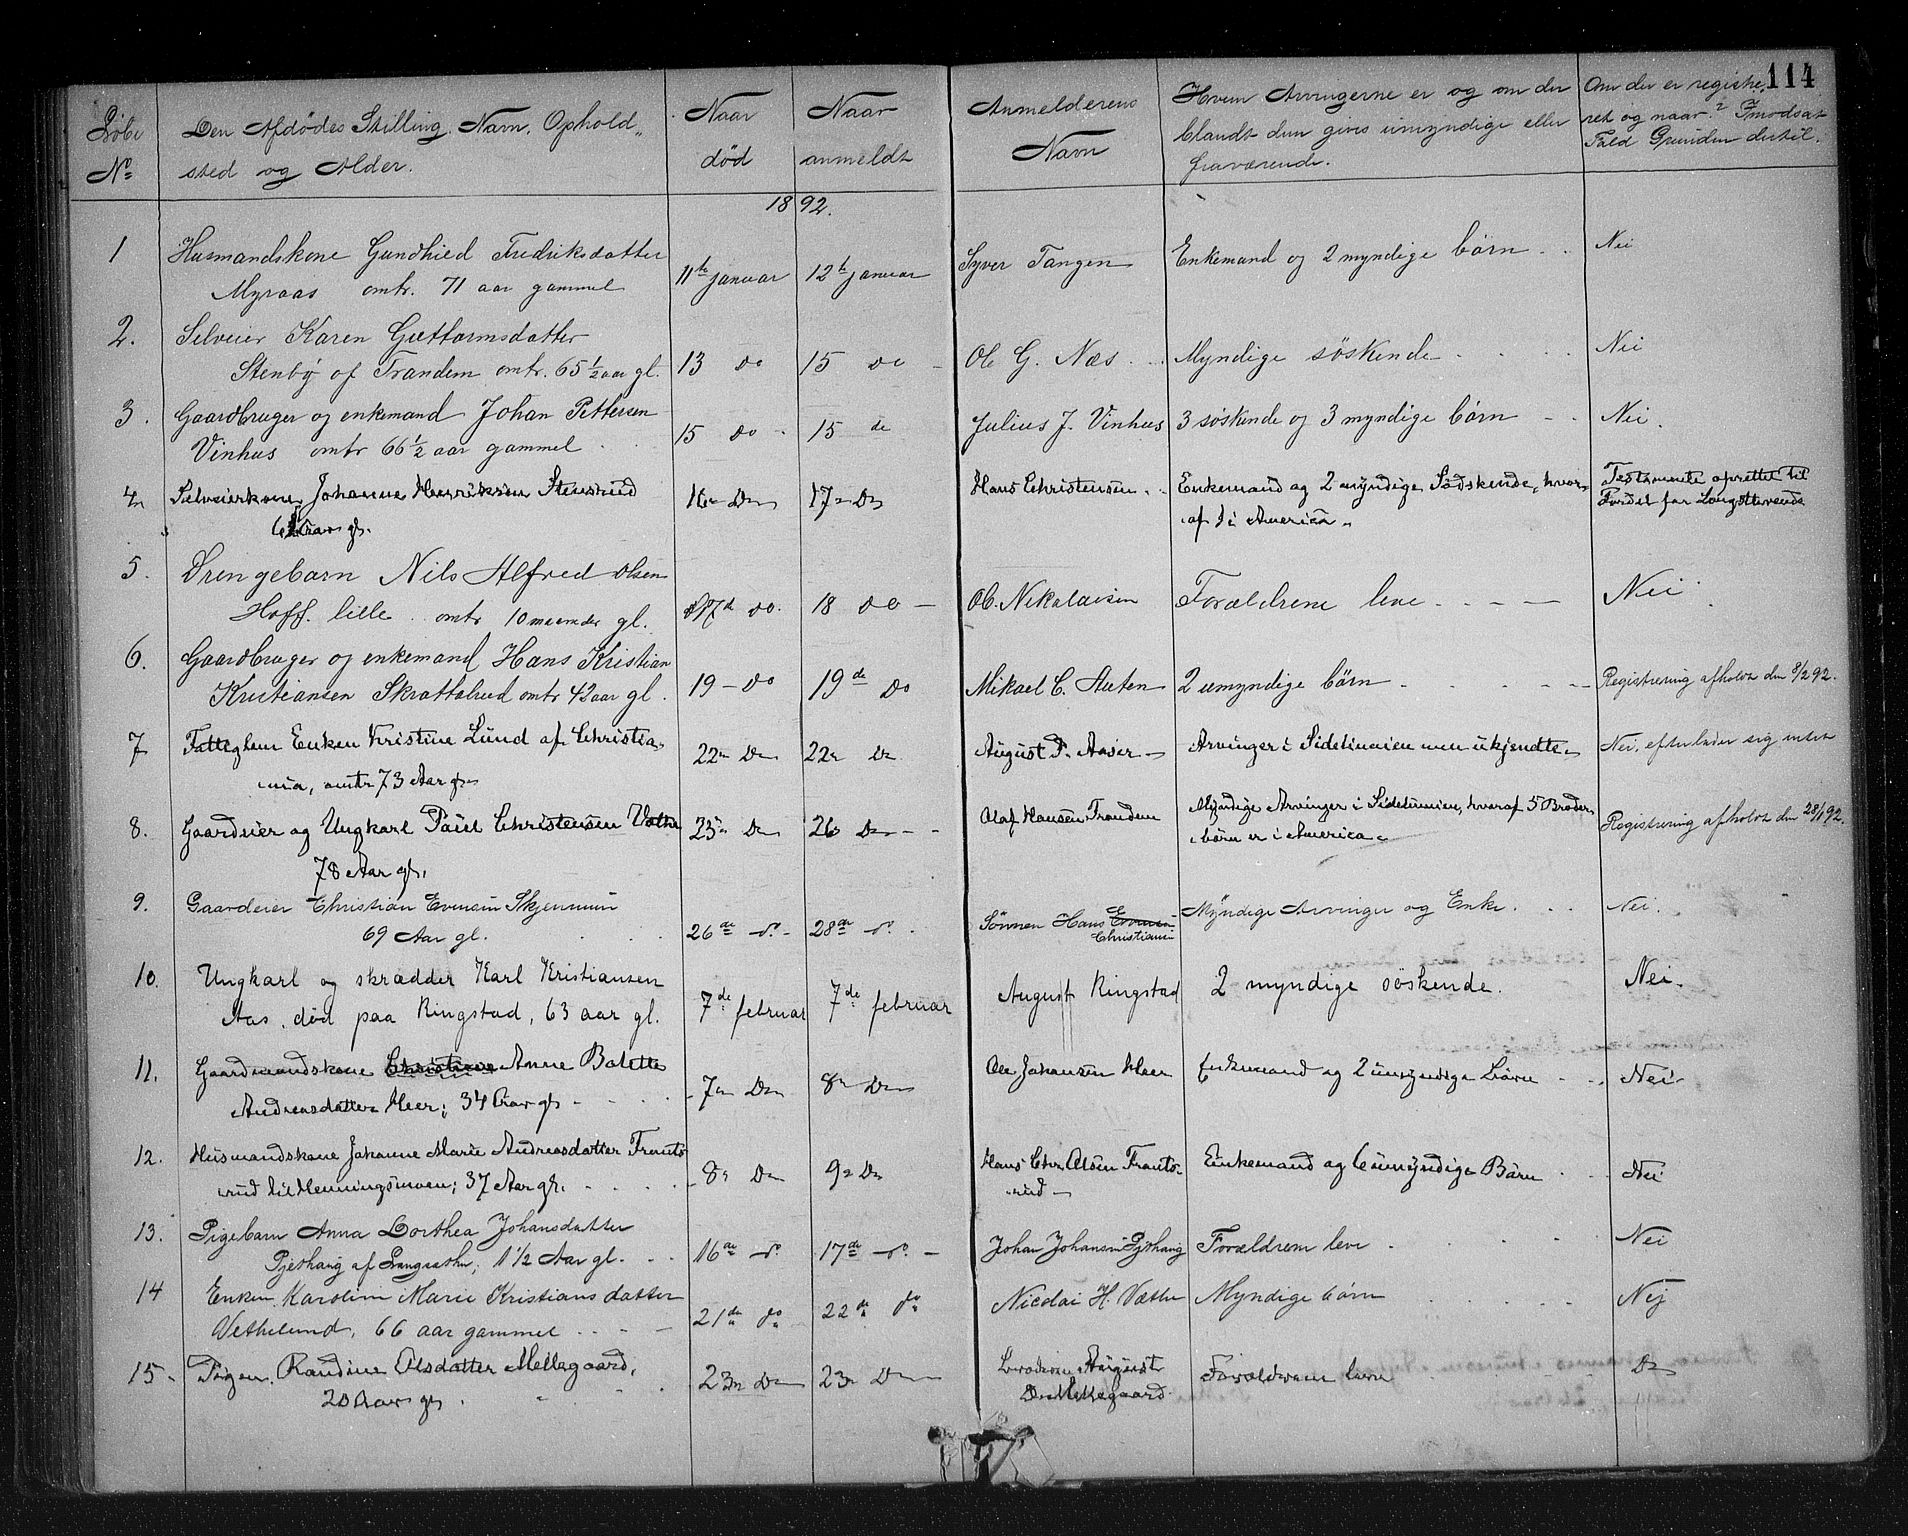 114
Löbe Nº
Den Afdödes Stilling, Navn, Ophold„
sted og Alder.
Naar död
Naar anmeldt
Anmelderens Navn
Hvem Arvingerne er og om der
blandt dem gives umyndige eller
fraværende.
Om der er registre,
ret og naar? I modsat
Fald Grunden dertil.
1892.
1 Husmandskone Gundhied Fredriksdatter 11te januar 12te januar Syver Tangen Enkemand og 2 myndige börn Nei
Myraas omtr. 71 aar gammel
2. Selveier Karen Guttormsdatter 13 do 15 do Ole G. Næs Myndige söskende Nei
Stenby af Trandem omtr. 65 1/2 aar gl.
3. Gaardbruger og enkemand Johan Pettersen 15 do 15 de Julius J. Vinhus 3 söskende og 3 myndige börn Nei.
Vinhus omtr 66 1/2 aar gammel
4 Selveierkone Johanne Henriksen Stensrud 16 Do 17 Do Hans Christensen Enkemand og 2 myndige Södskende, hvor- Testamente oprettet til
Aar gl. af 1 i America Fordel for Længstlevende
5. Drengebarn Nils Alfred Olsen 17d do. 18 do Ole Nikolaisen Forældrene leve Nei
Hoff. lille omtr 10 maaneder gl.
6. Gaardbruger og enkemand Hans Kristian 19 do 19de do Mikael C. 2 umyndige börn Registrering afholdt den 8/2 92.
Kristiansen Skrattelrud omtr 42 aar gl.
7 Fattiglem Enken Kristine Lund af Christia- 22 Do 22 Do August P. Arvinger i Sidelinien men ukjendte Nei, efterlader sig intet
nia, omtr 73 Aar gl
8. Gaardeier og Ungkarl Paul Christensen 25 Do 26 Do Olaf Hansen Trandem Myndige Arvinger i Sidelinien, hvoraf 5 Broder- Registrering afholdt den 28/1 92.
78 Aar gl. börn er i America
9. Gaardeier Christian Evensen Skjennum 26de do 28de do Sönnen Hans Evensen Christiansen Myndige Arvinger og Enke. Nei.
69 Aar gl.
10. Ungkarl og skrædder Karl Kristiansen 7de februar 7de februar August Ringstad 2 myndige söskende. Nei.
Aas, död paa Ringstad, 63 aar gl.
11. Gaardmandskone Christine Anne Bolette 7 Do 8 Do Ole Johansen Heer Enkemand og 2 umyndige Börn Nei
Andreasdatter Heer; 34 Aar gl
12. Husmandskone Johanne Marie Andreasdatter Frants- 8 Do 9 Do Hans Chr. Olsen Frants- Enkemand og 6 umyndige Börn Nei
rud til Henningsmoen; 37 Aar gl. rud
13. Pigebarn Anna Dorthea Johansdatter 16de do 17de do Johan Johansen Pjethaug Forældrene leve Nei
Pjethaug af 1 1/2 Aar gl.
14 Enken Karoline Marie Kristiansdatter 21de do 22de do Nicolai H. Væthe Myndige börn Nej
Vethelund, 66 aar gammel
15 Pigen Randine Olsdatter Mellegaard, 23 Do 23 Do Broderen August Forældrene leve Do
20 Aar gl. O. Mellegaard